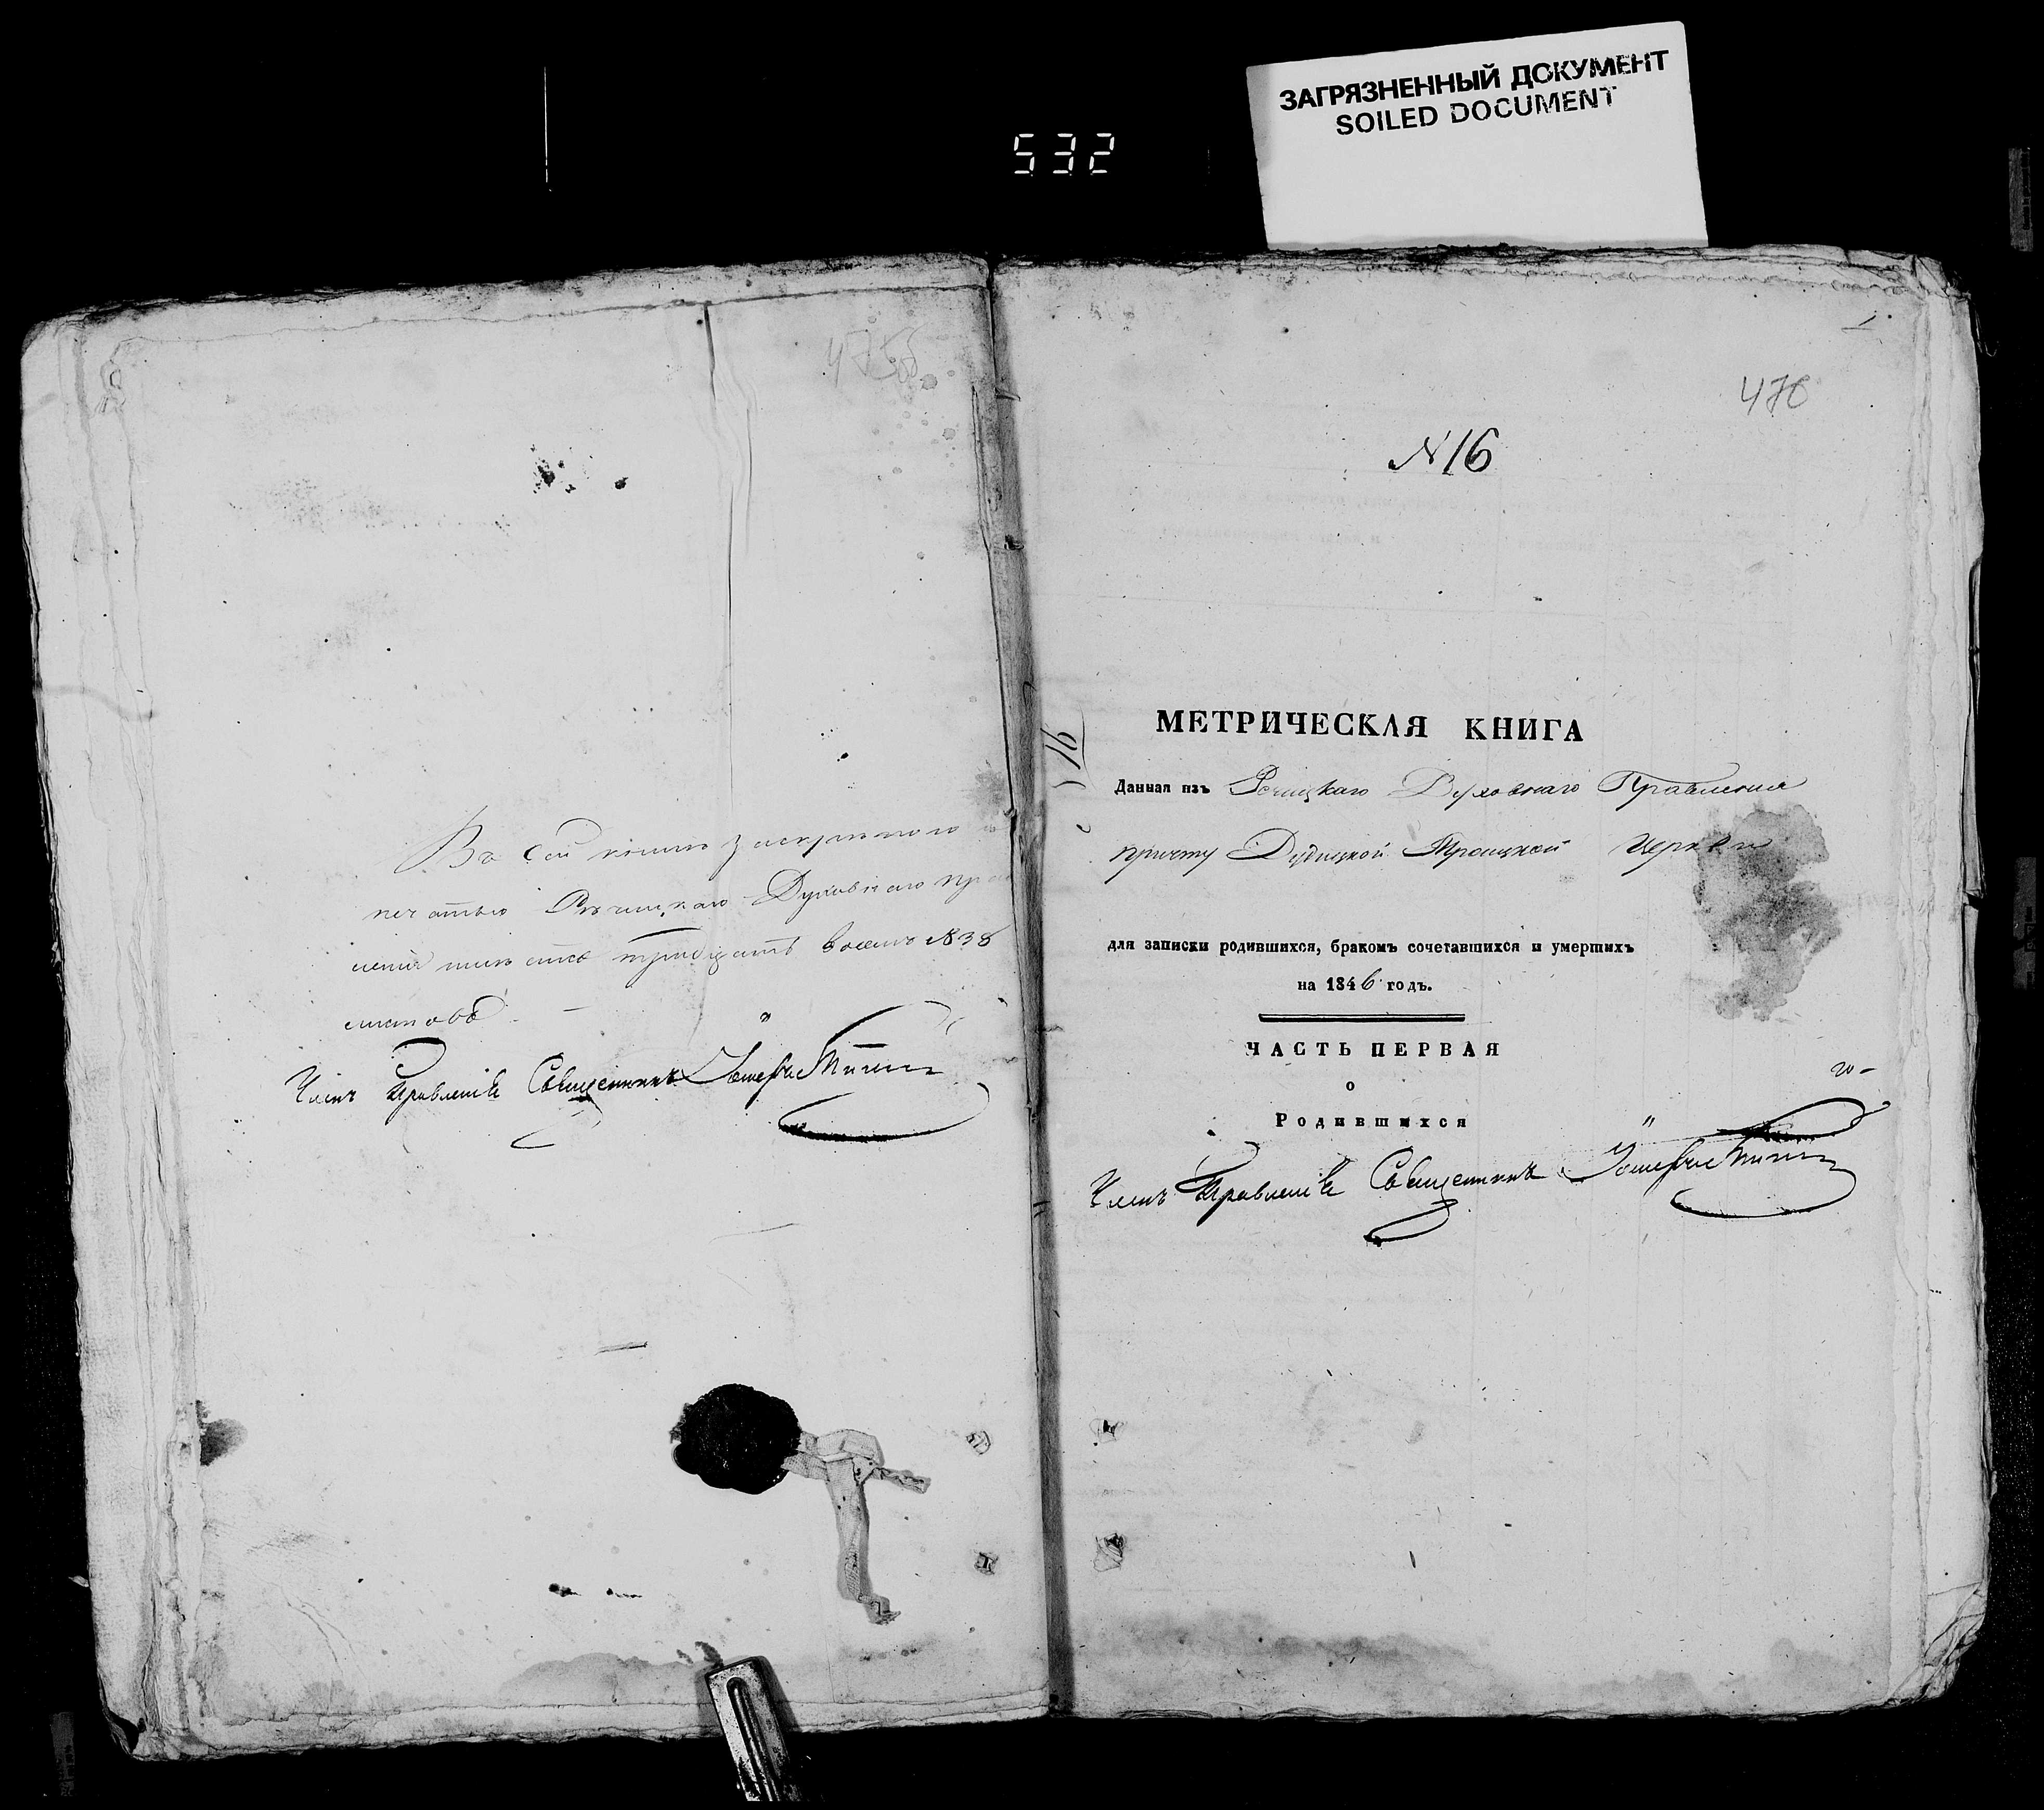 ЗАГРЯЗНЕННЫЙ ДОКУМЕНТ
SOILED DOCUMENT
532
475об
Въ сей книгѣ заскрѣпою и
печатью Рѣчицкаго Духовнаго пра
ленія тридцать восемь 38
листовъ.
Членъ Правленія Священникъ
476
N 16
16
МЕТРИЧЕСКАЯ КНИГА
Данная изъ Рѣчицкаго Духовнаго Правленія
причту Дудицкой Троицкой Церкви
для записки родившихся, бракомъ сочетавшихся и умершихъ
на 1846 годъ.
ЧАСТЬ ПЕРВАЯ
о
Родившихся
Членъ Правленія Священникъ